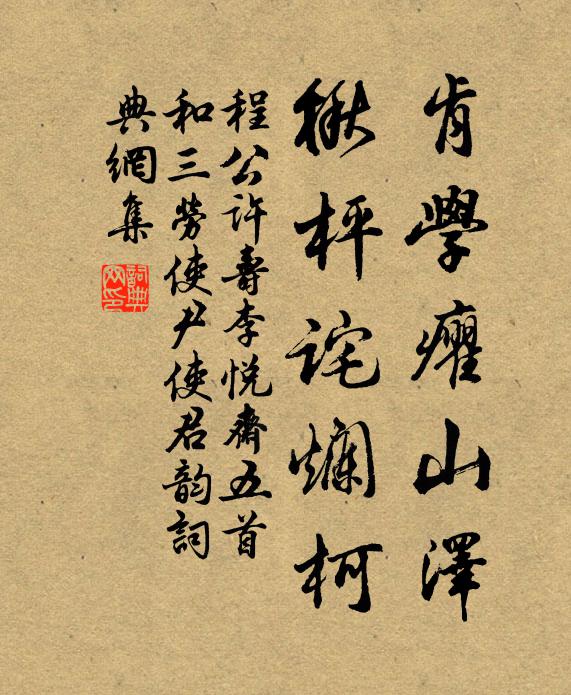 肯學癯山澤
楸枰詫爛柯
程公許壽李悅齋五首
和三勞使尹使君韵詞
典網集
詞典網印